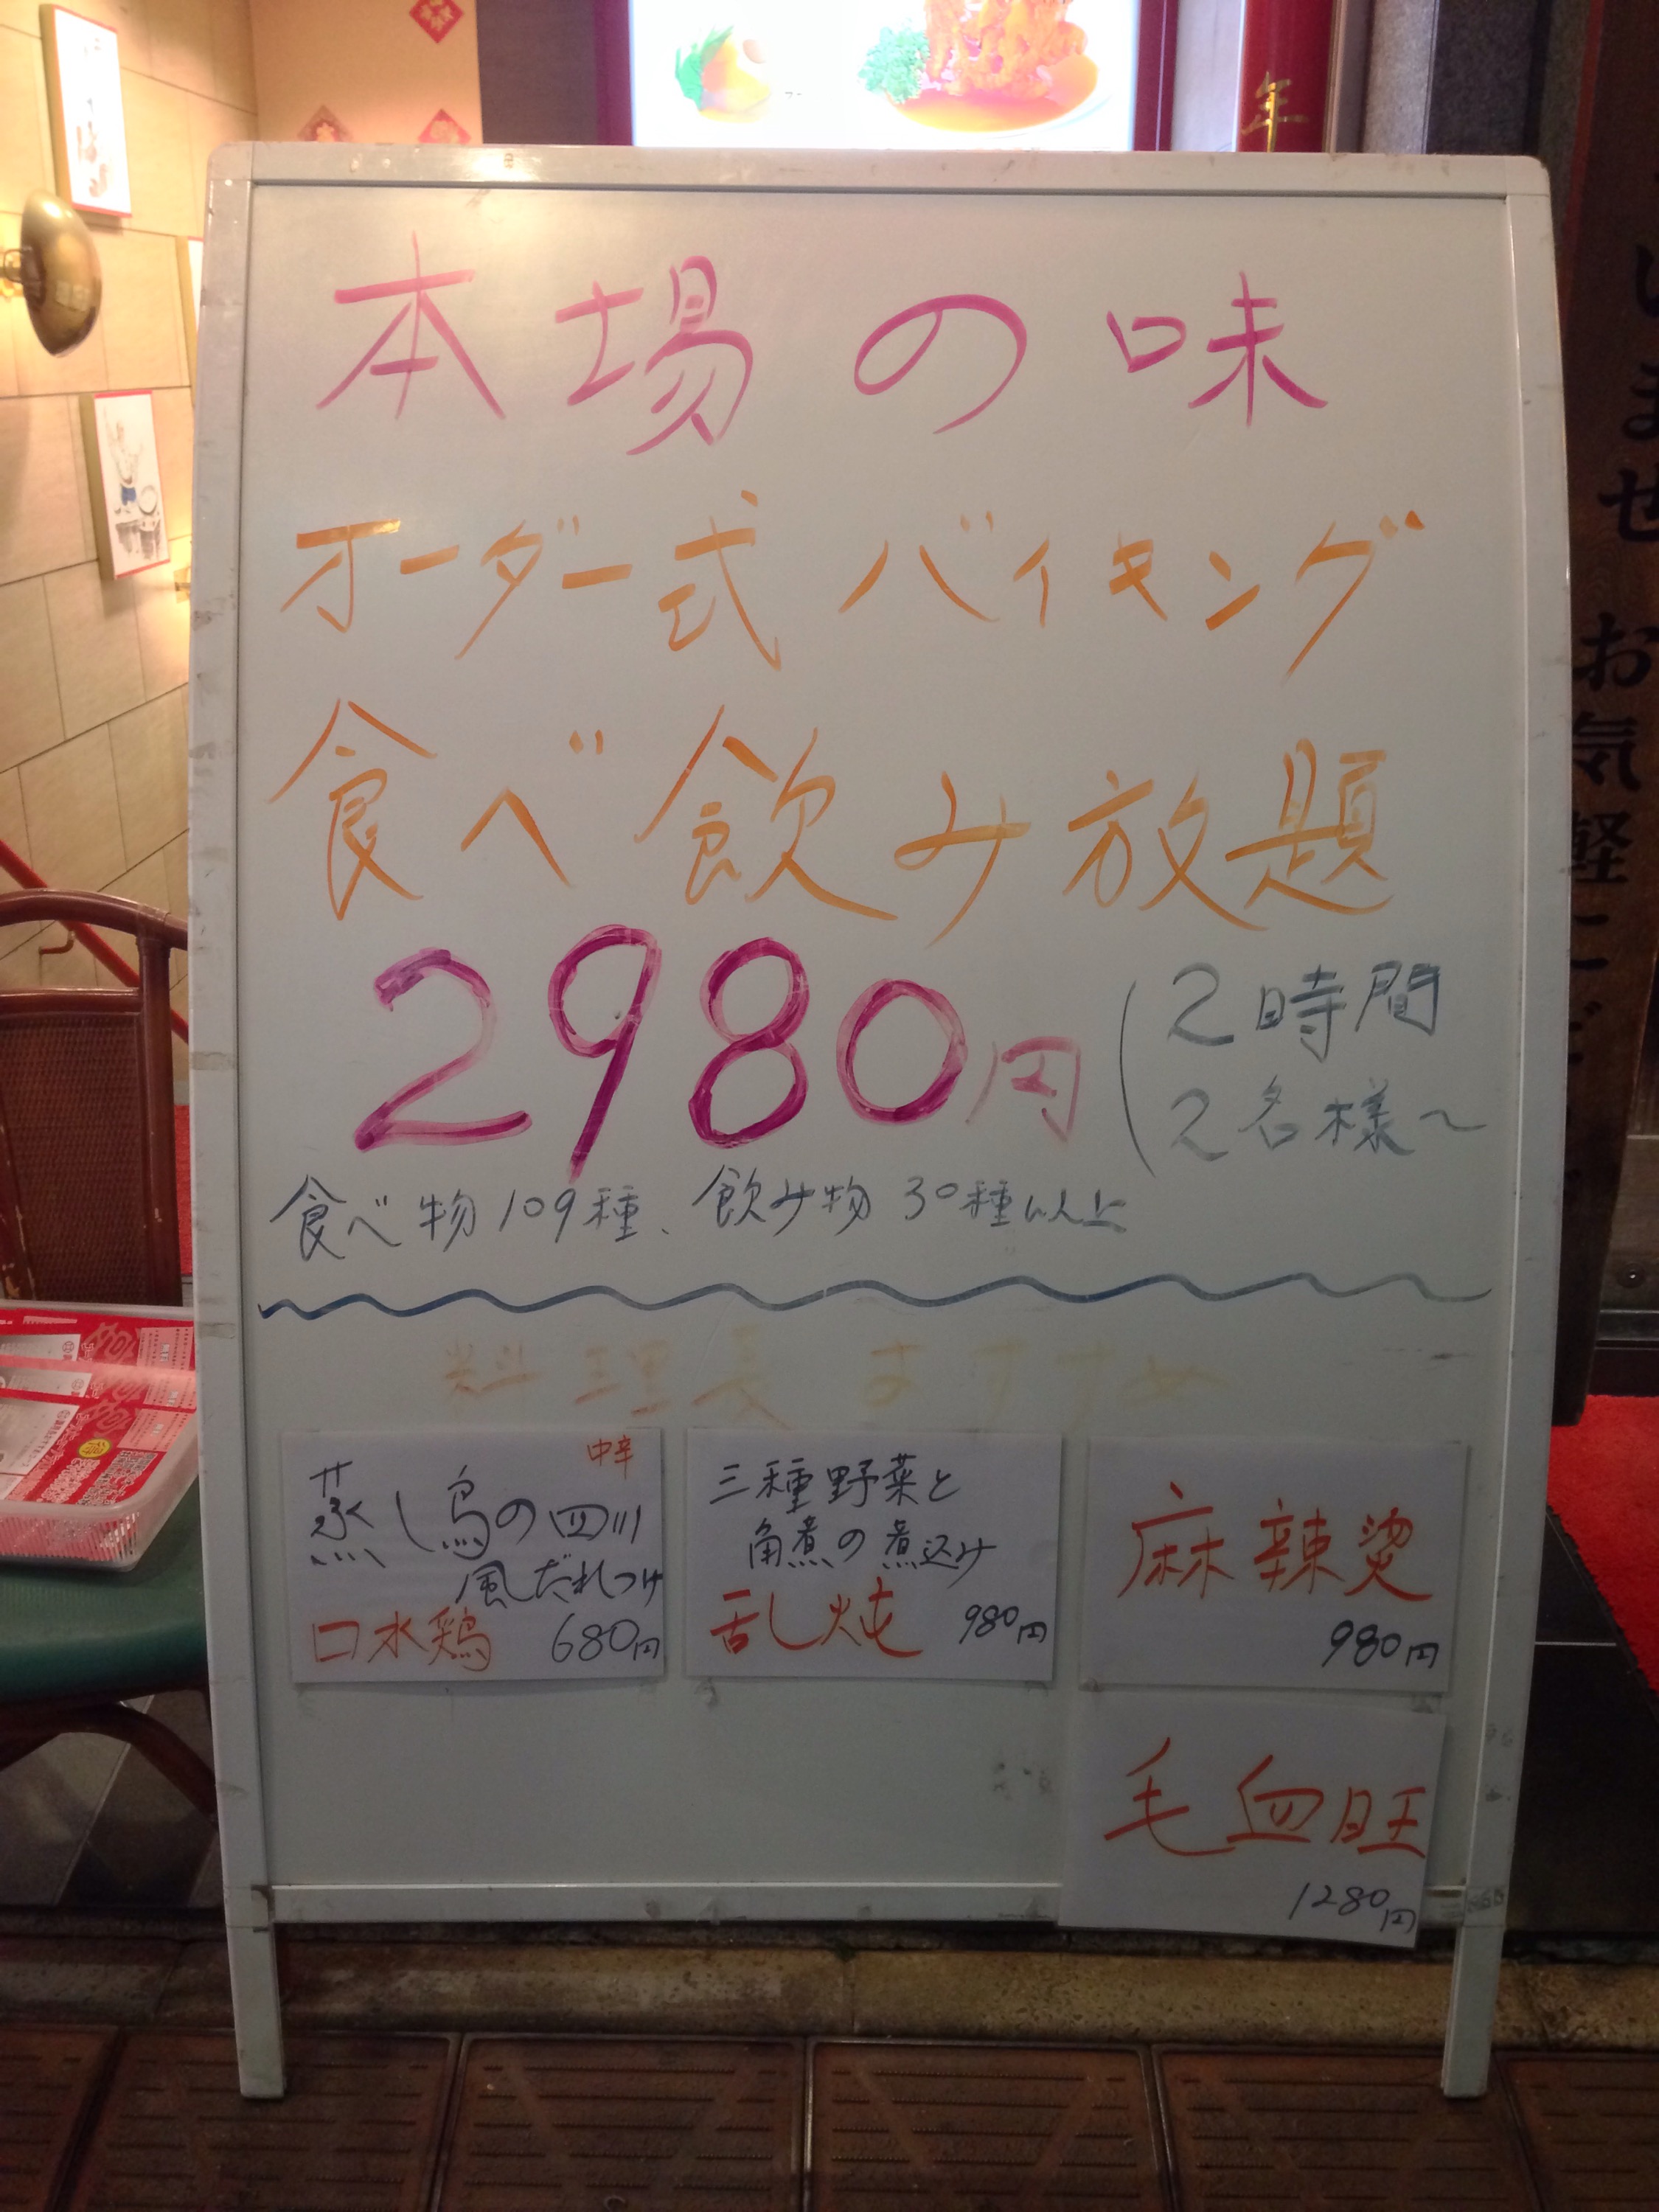 本場の味
オーダー式バイキング
食べ飲み放題
2980円(2時間
2名様～
食べ物109種、飲み物30種以上
料理長おすすめ
中辛
蒸し鳥の四川
風だれつけ
口水鶏 680円
三種野菜と
角煮の煮込み
乱炖 980円
麻辣烫
980円
毛血旺
1280円
年
いませ お気軽にど